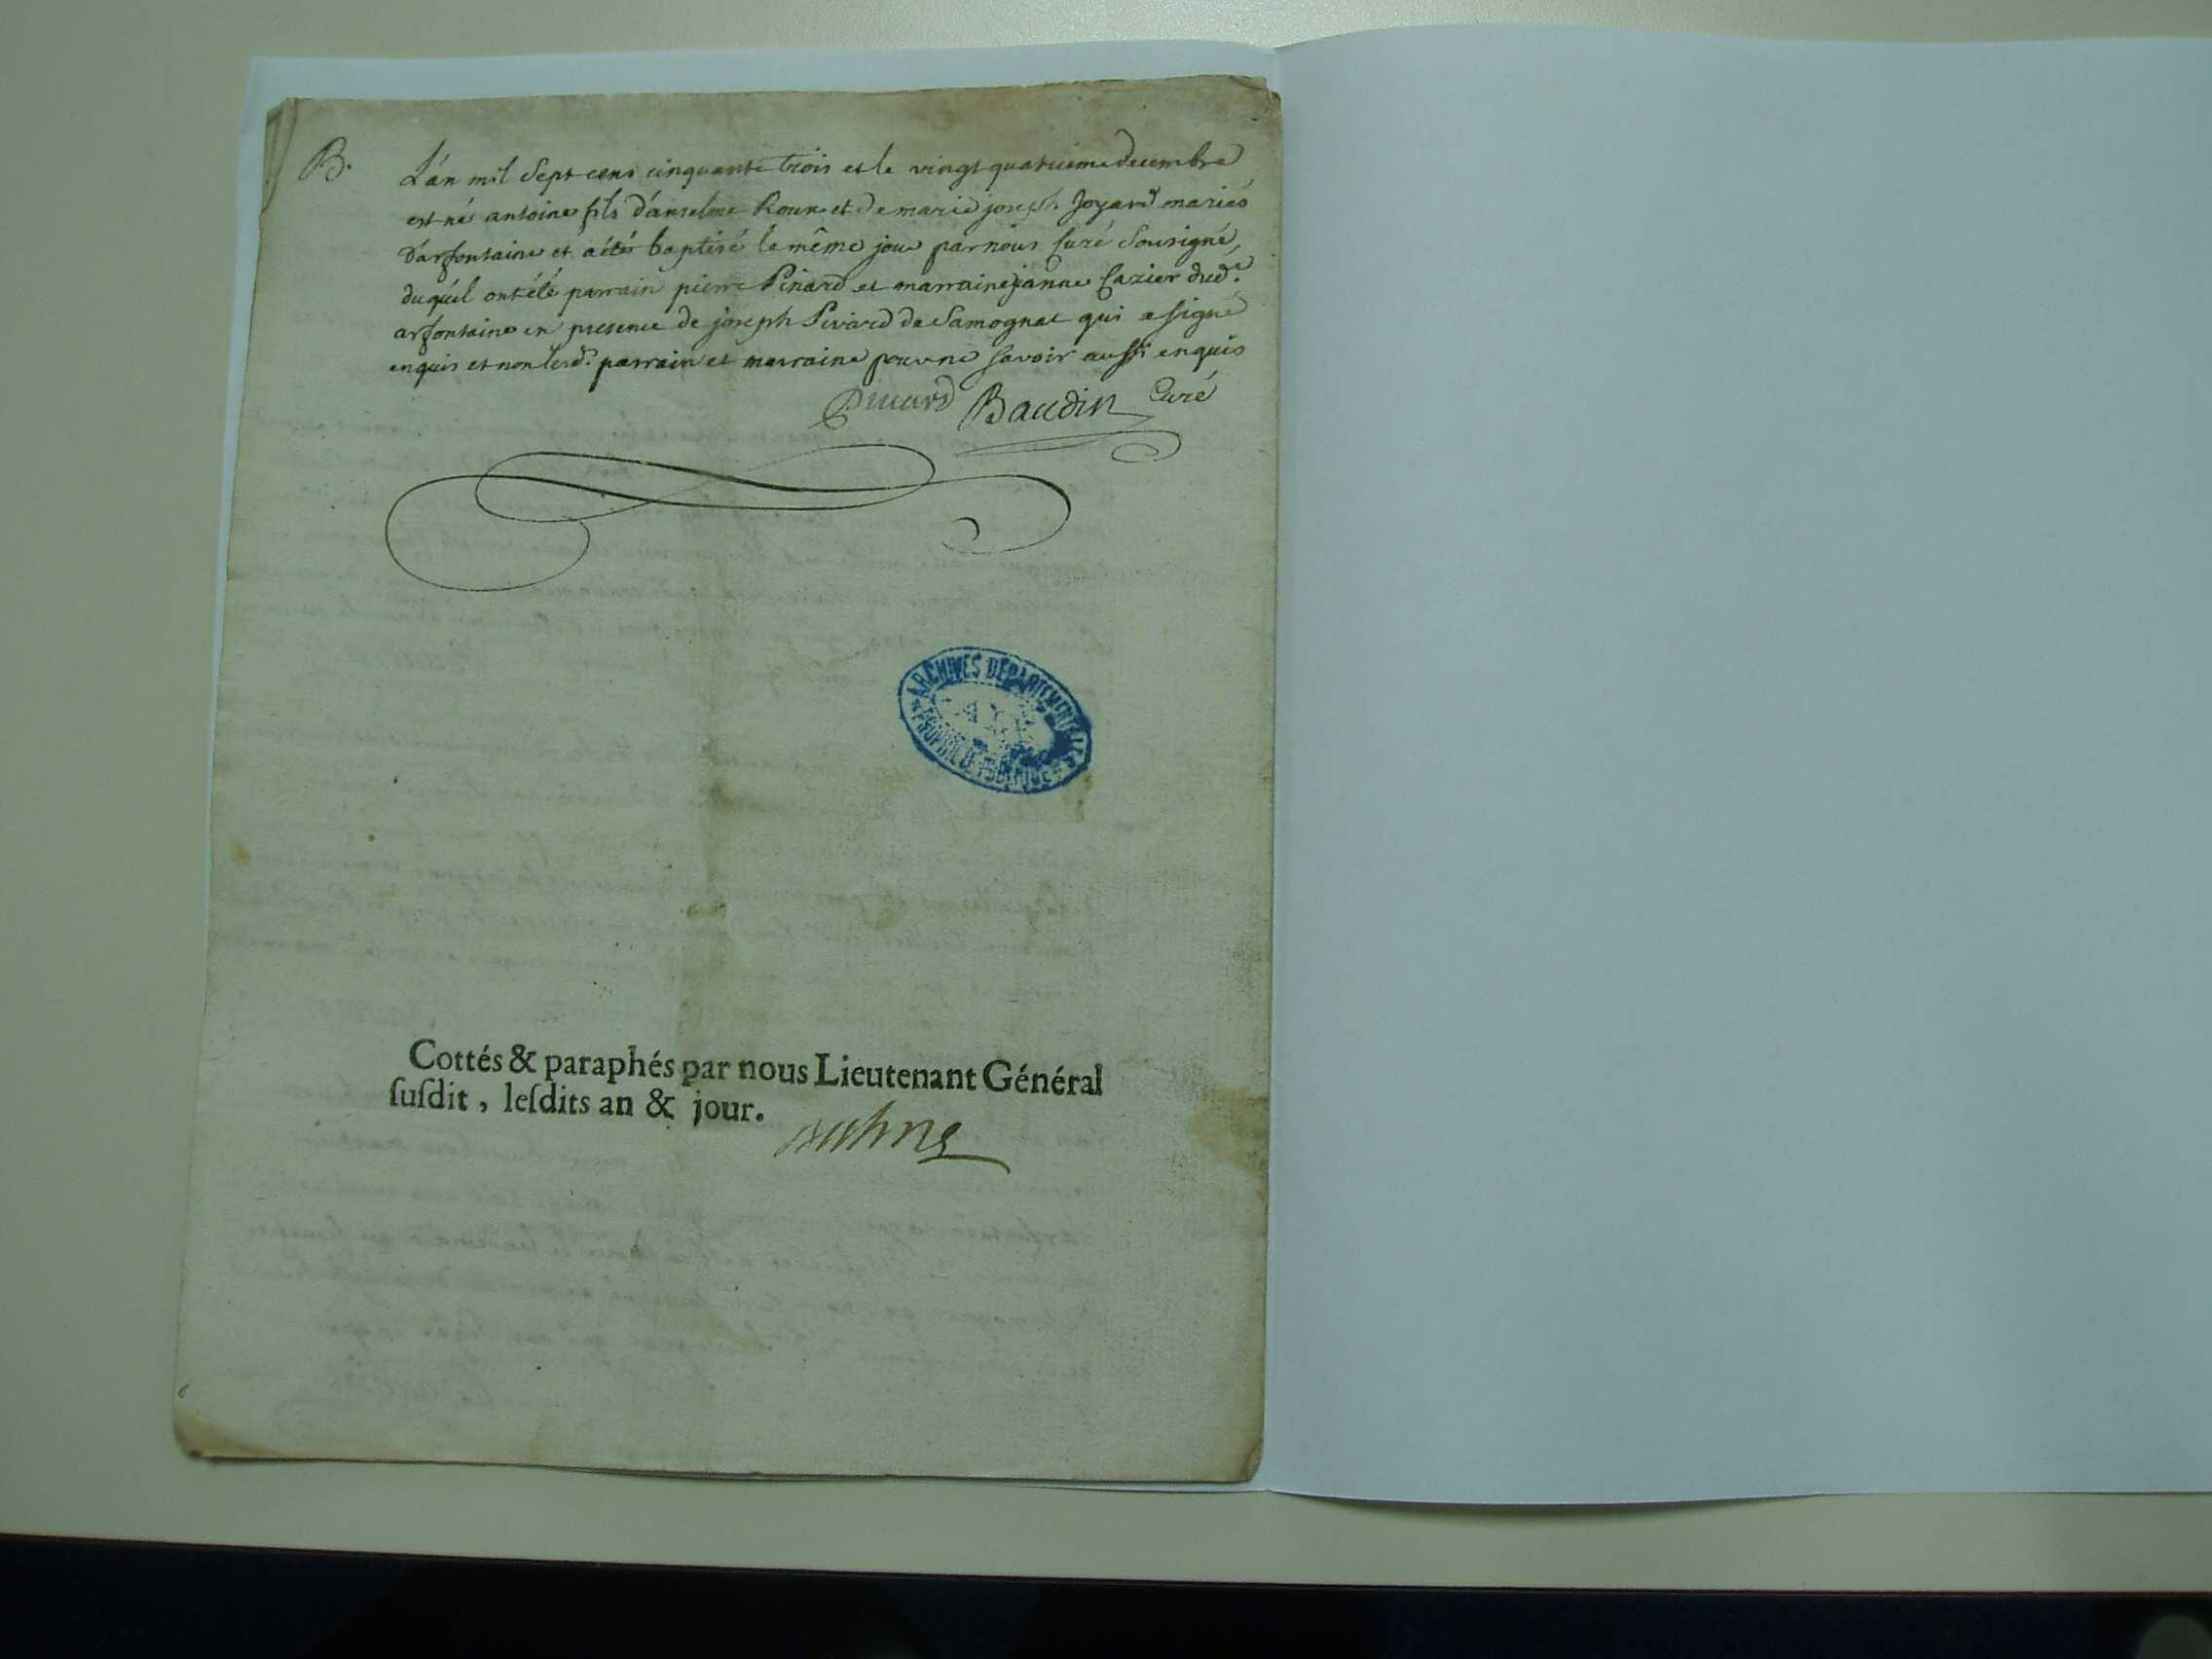 B.
L'an mil Sept cens cinquante trois et le vingt quatrieme decembre
est né antoine fils d'anselme Roux et de marie joseph Joyard mariés
d'arfontaine et a été baptisé le même jour par nous Curé Sousigné,
duquel ont été parrain pierre Pivard et marraine janne Cazier dud.
arfontaine en presence de joseph Pivard de Samognat qui a signé
enquis et non lesd. parrain et marraine pour ne savoir aussi enquis
Pivard Baudin Curé
ARCHIVES DÉPARTEMENTALES
PROPRIÉTÉ PUBLIQUE
Cottés & paraphés par nous Lieutenant Général
ſuſdit, leſdits an & jour.